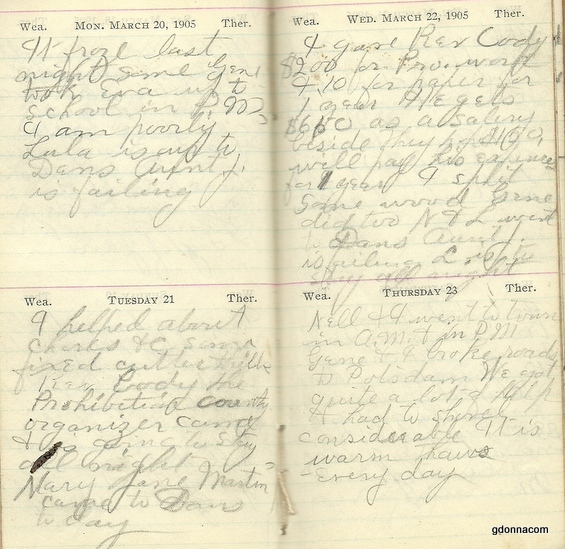 Wea. MON. MARCH 20, 1905 Ther.
It froze last
night some Gene
took Eva up to
school in P.M.
I am poorly
Lula is up to
Dans Aunt J.
is failing
Wea. TUESDAY 21 Ther.
I helped about
chores & C.
fixed cutter thills
Rev Cody the
Prohibition county
organizer came
& is going to stay
all night
Mary Jane Martin
came to Dans
to day
Wea. WED. MARCH 22, 1905 Ther.
I gave Rev Cody
$2.00 for Pro. work
& .10 for paper for
1 year He gets
as a salary
beside they
will pay his expenses
for 1 year I split
some wood Gene
did too N & L went
to Dans Aunt J.
is failing
stay all night
Wea. THURSDAY 23 Ther.
Nell & I went to town
in A.M. & in P.M.
Gene & I broke roads
to Potsdam We got
quite a lot of help
& had to shovel
considerable It is
warm thaws
every day
gdonnacom